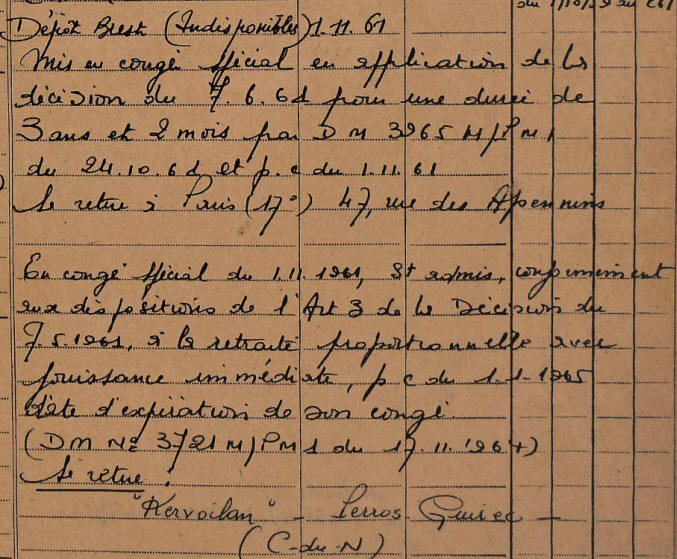 du 1/10/
Dépôt Brest (Indisponibles) 1.11.61
Mis en congé spécial en application de la
décision du 7.6.61 pour une durée de
3 ans et 2 mois par DM 3965 M/PM1
du 24.10.61 et p.c du 1.11.61
Se retire à Paris (17°) 47, rue des Apennins
En congé spécial du 1.11.1961, St admis, conformément
aux dispositions de l'Art 3 de la Décision du
7.5.1961, à la retraite proportionnelle avec
jouissance immédiate, p c du 1-1-1965
date d'expiration de son congé.
(DM N° 3721 M/PM1 du 17.11.1964)
Se retire :
"Kervoilan" - Perros-Guirec -
(C-du-N)